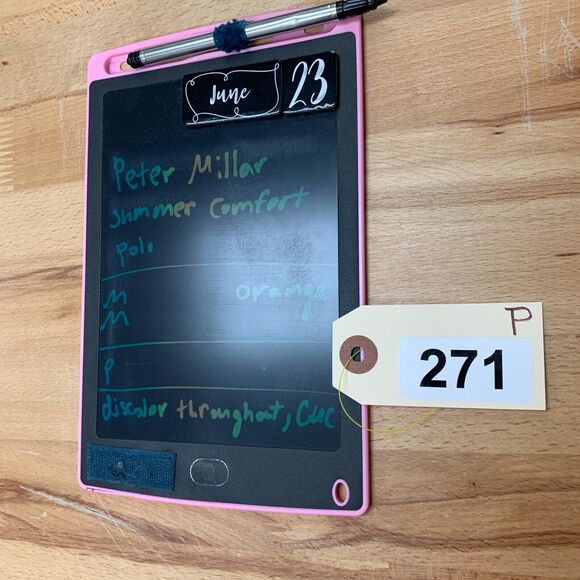 June 23
Peter Millar
Summer Comfort
Polo
M orange
M
P
discolor throughout,
P
271